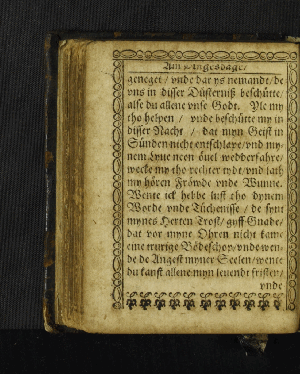 geneget / vnde dar ys nemandt / de
vns in disser Düsternuß beschütte,
alse du allene vnse Godt. Yle my
tho helpen / vnde beschütte my in
disser Nacht / dat myn Geist in
Sünden nicht entschlape / vnd my-
nem Lyue neen öuel wedderfahre /
wecke my tho rechter tydt / vnd lath
my hören Fröwde vnde Wunne.
Wente ick hebbe lust tho dynem
Worde vnde Tüchenisse / de synt
mynes Herten Trost / gyff Gnade /
dat vor myne Ohren nicht kame
eine trurige Bödeschop / vnde wen-
de de Angest myner Seelen / wente
du kanst allene myn leuendt fristen /
vnde